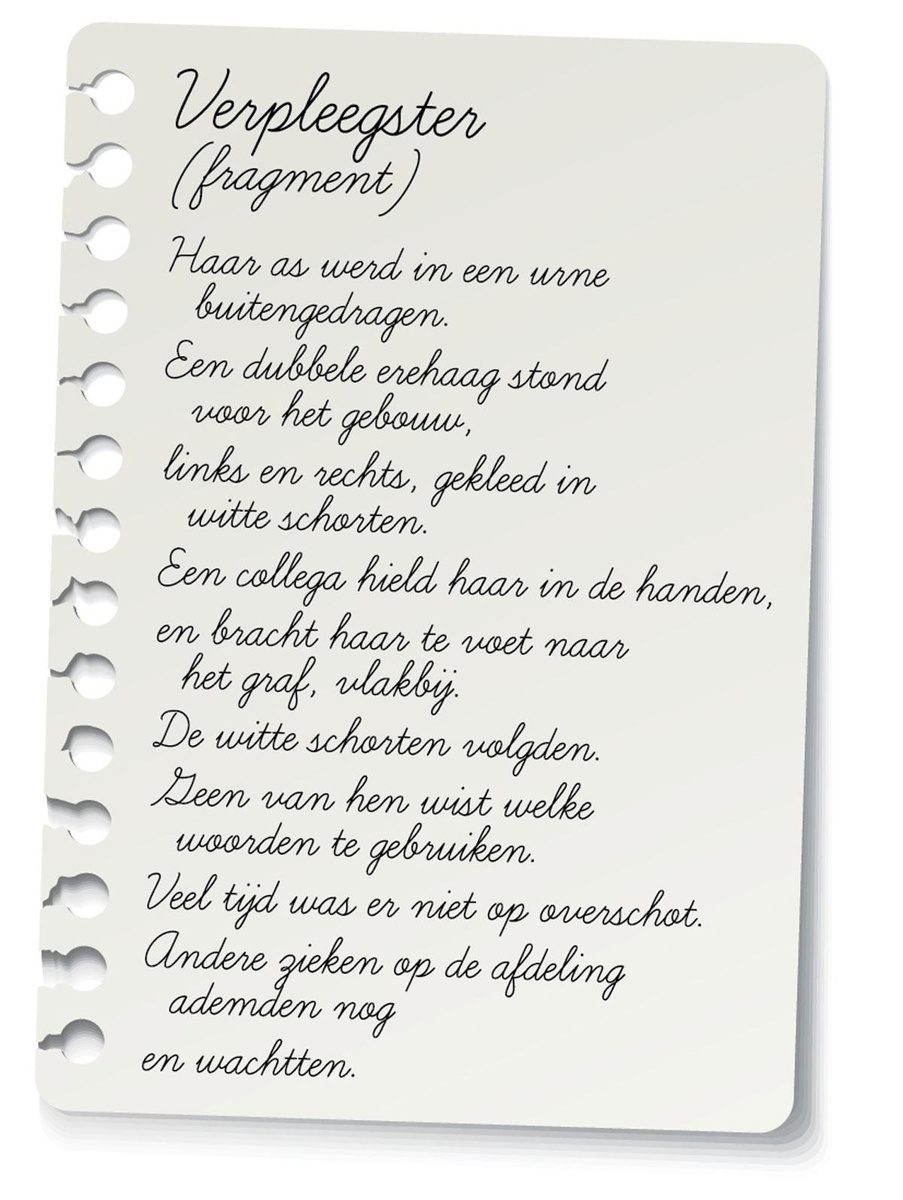 Verpleegster
(fragment)
Haar as werd in een urne
buitengedragen.
Een dubbele erehaag stond
voor het gebouw,
links en rechts, gekleed in
witte schorten.
Een collega hield haar in de handen,
en bracht haar te voet naar
het graf, vlakbij.
De witte schorten volgden.
Geen van hen wist welke
woorden te gebruiken.
Veel tijd was er niet op overschot.
Andere zieken op de afdeling
ademden nog
en wachtten.